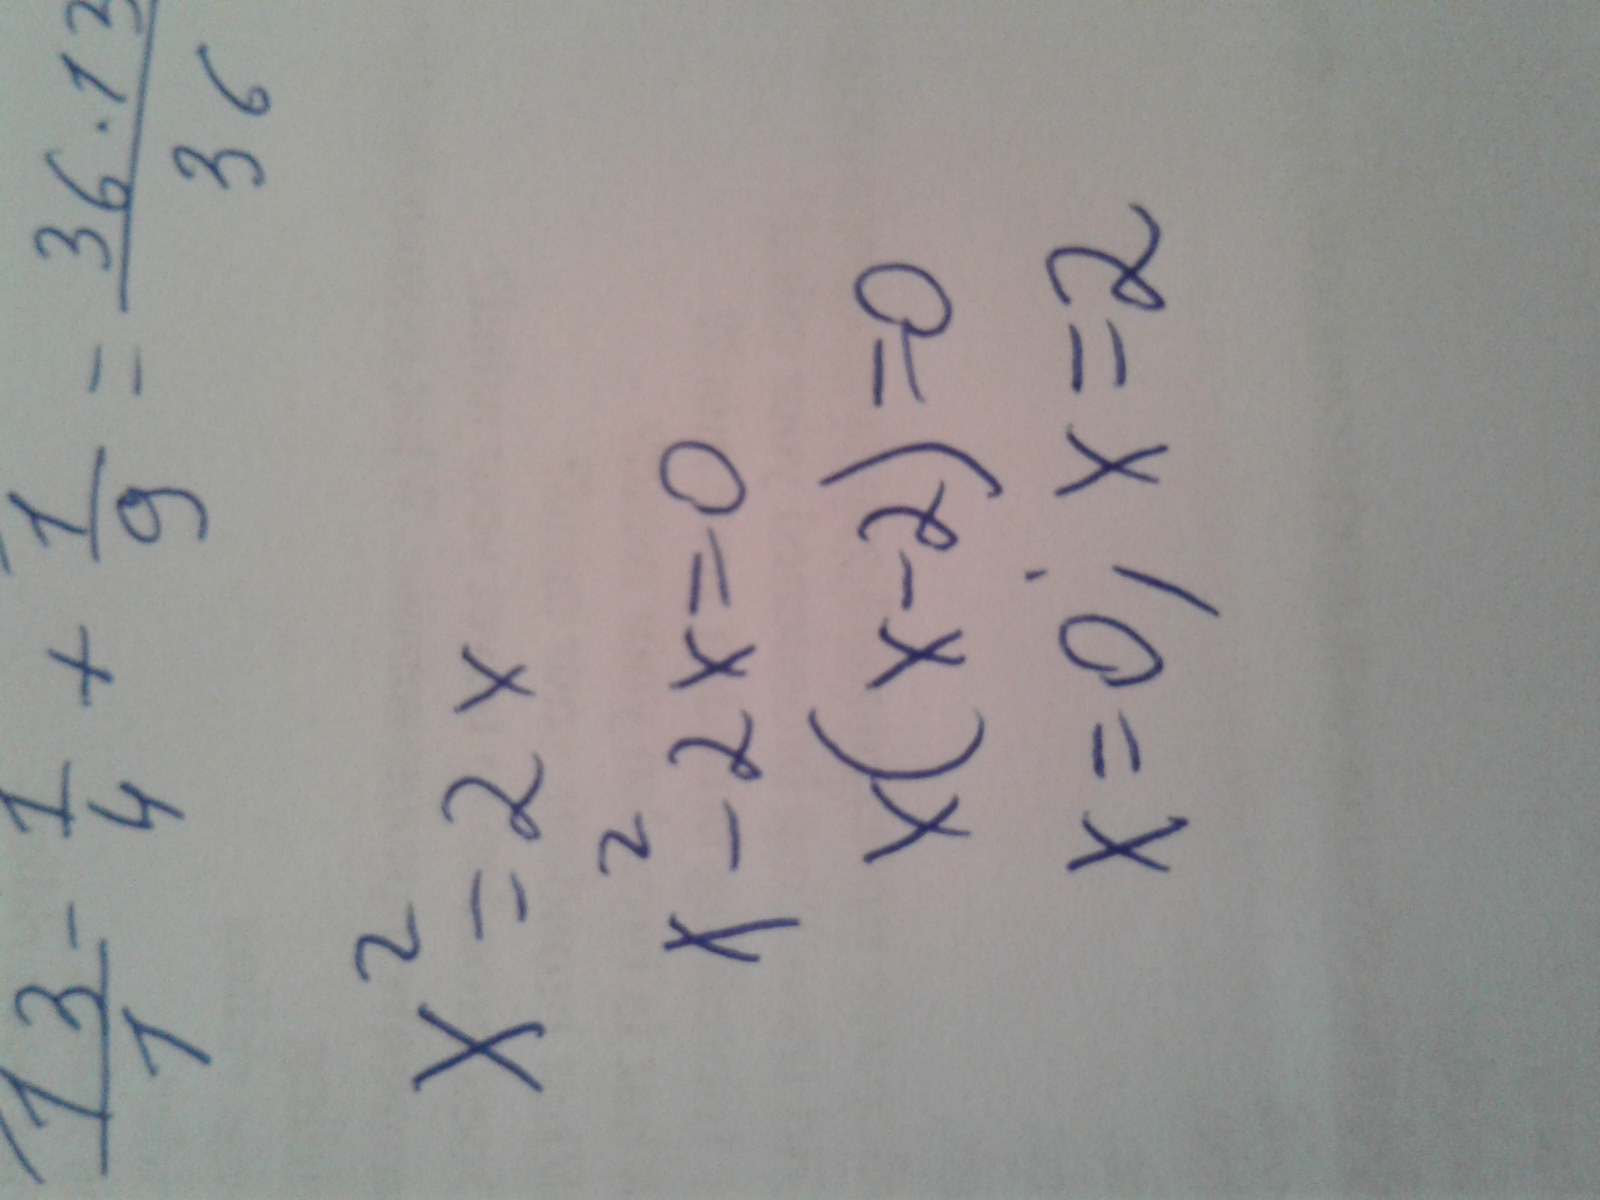 13/1 - 1/4 + 1/9 = 36·13/36
x² = 2x
x² - 2x = 0
x(x-2) = 0
x = 0; x = 2